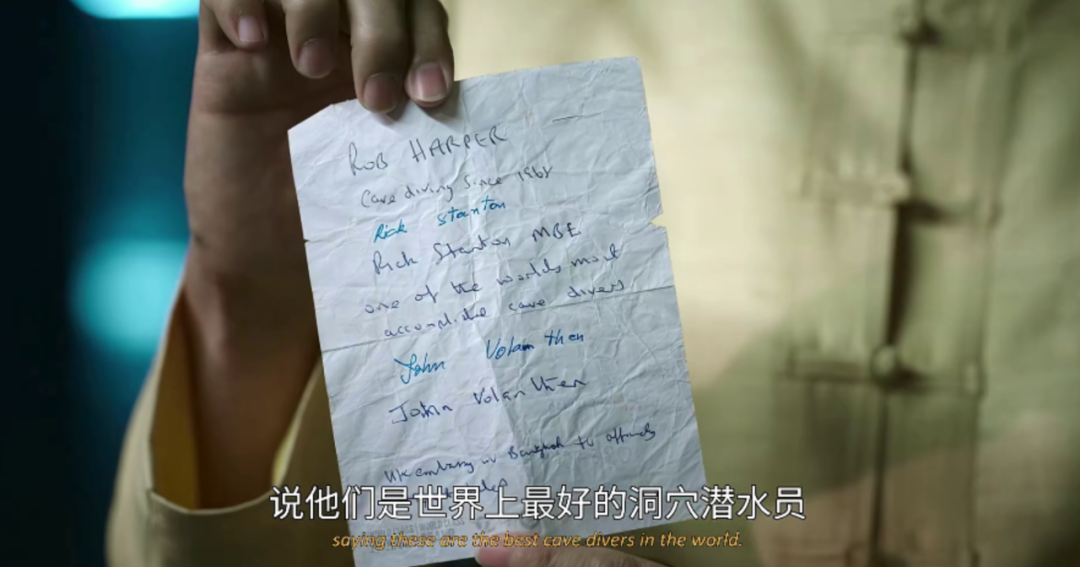 ROB HARPER
Cave diving since 1968
Rick Stanton
Rick Stanton MBE
one of the worlds most
accomplishe cave divers
John Volanthen
John Volanthen
UK embassy in Bangkok
说他们是世界上最好的洞穴潜水员
saying these are the best cave divers in the world.